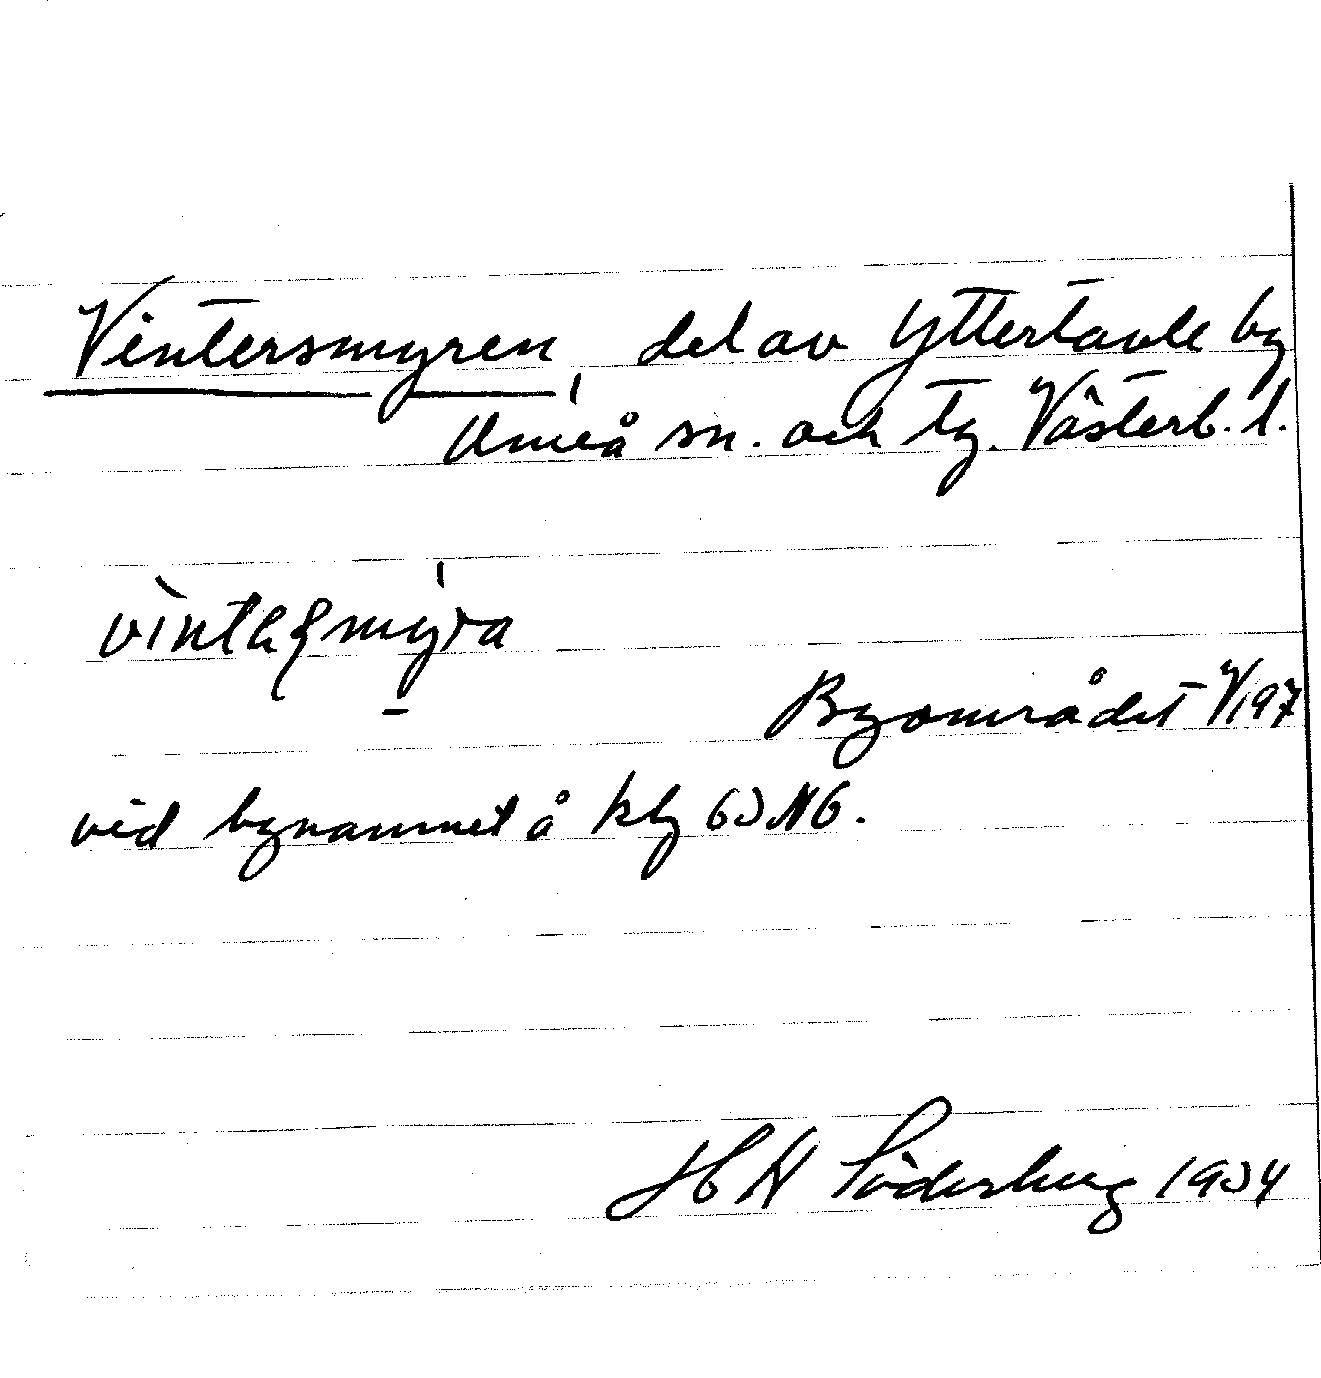 Vintersmyren, del av Yttertavle by
Umeå sn. och tg. Västerb. l.
Byområdet V197
vid bynamnet å kbg 63 NG.
H N Söderberg 1934